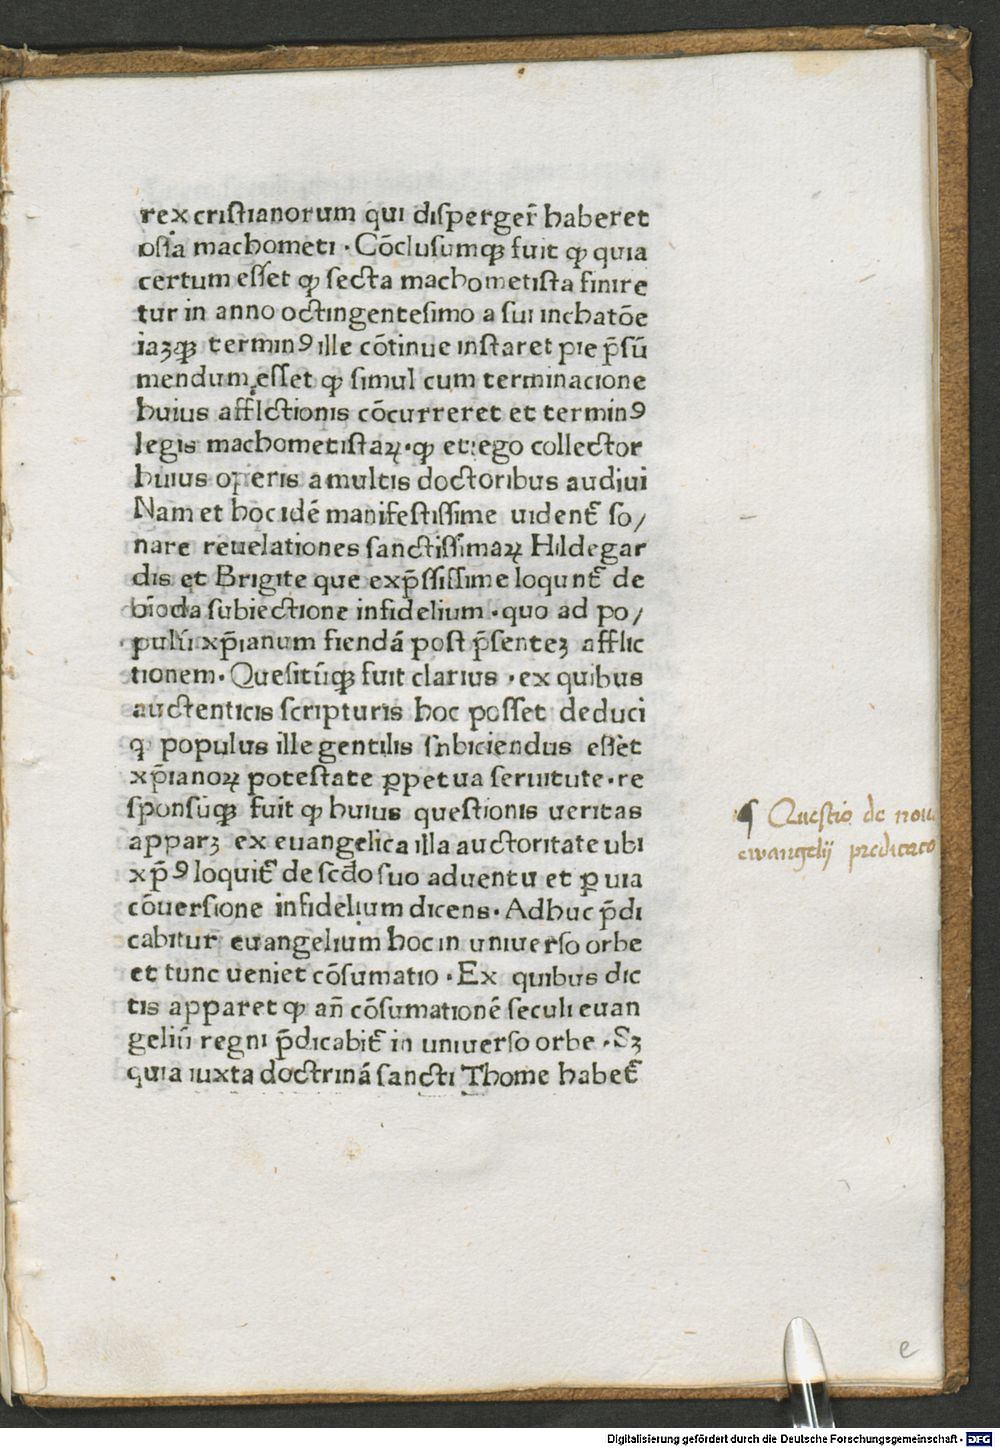 rex cristianorum qui disperger̄ haberet
osta machometi · Cōclusumqꝫ fuit ꝙ quia
certum esset ꝙ secta machometista finire
tur in anno octingentesimo a sui inchatōe
iaꝫqꝫ terminꝰ ille cōtinue instaret pie p̄sū
mendum esset ꝙ simul cum terminacione
huius afflctionis cōcurreret et terminꝰ
legis machometistaꝝ · ꝙ et ego collector
huius operis a multis doctoribus audiui
Nam et hoc idē manifestissime uident᷑ so/
nare reuelationes sanctissimaꝝ Hildegar
dis et Brigite que exp̄ssissime loqunt᷑ de
bīoda subiectione infidelium · quo ad po/
pulū xp̄ianum fiendā post p̄senteꝫ afflic
tionem · Quesitūqꝫ fuit clarius · ex quibus
auctenticis scripturis hoc posset deduci
ꝙ populus ille gentilis snbiciendus esset
xp̄ianoꝝ potestate ꝑpetua seruitute · re
sponsūqꝫ fuit ꝙ huius questionis ueritas
apparꝫ ex euangelica illa auctoritate ubi
xp̄ꝰ loquit᷑ de scd̄o suo aduentu et ꝑ uia
cōuersione infidelium dicens · Adhuc p̄di
cabitur euangelium hoc in uniuerso orbe
et tunc ueniet cōsumatio · Ex quibus dic
tis apparet ꝙ an̄ cōsumationē seculi euan
geliū regni p̄dicabit᷑ in uniuerso orbe · Sꝫ
quia iuxta doctrinā sancti Thome habet᷑
¶ Questio de nou
ewangelij predicato
e
Digitalisierung gefördert durch die Deutsche Forschungsgemeinschaft - DFG